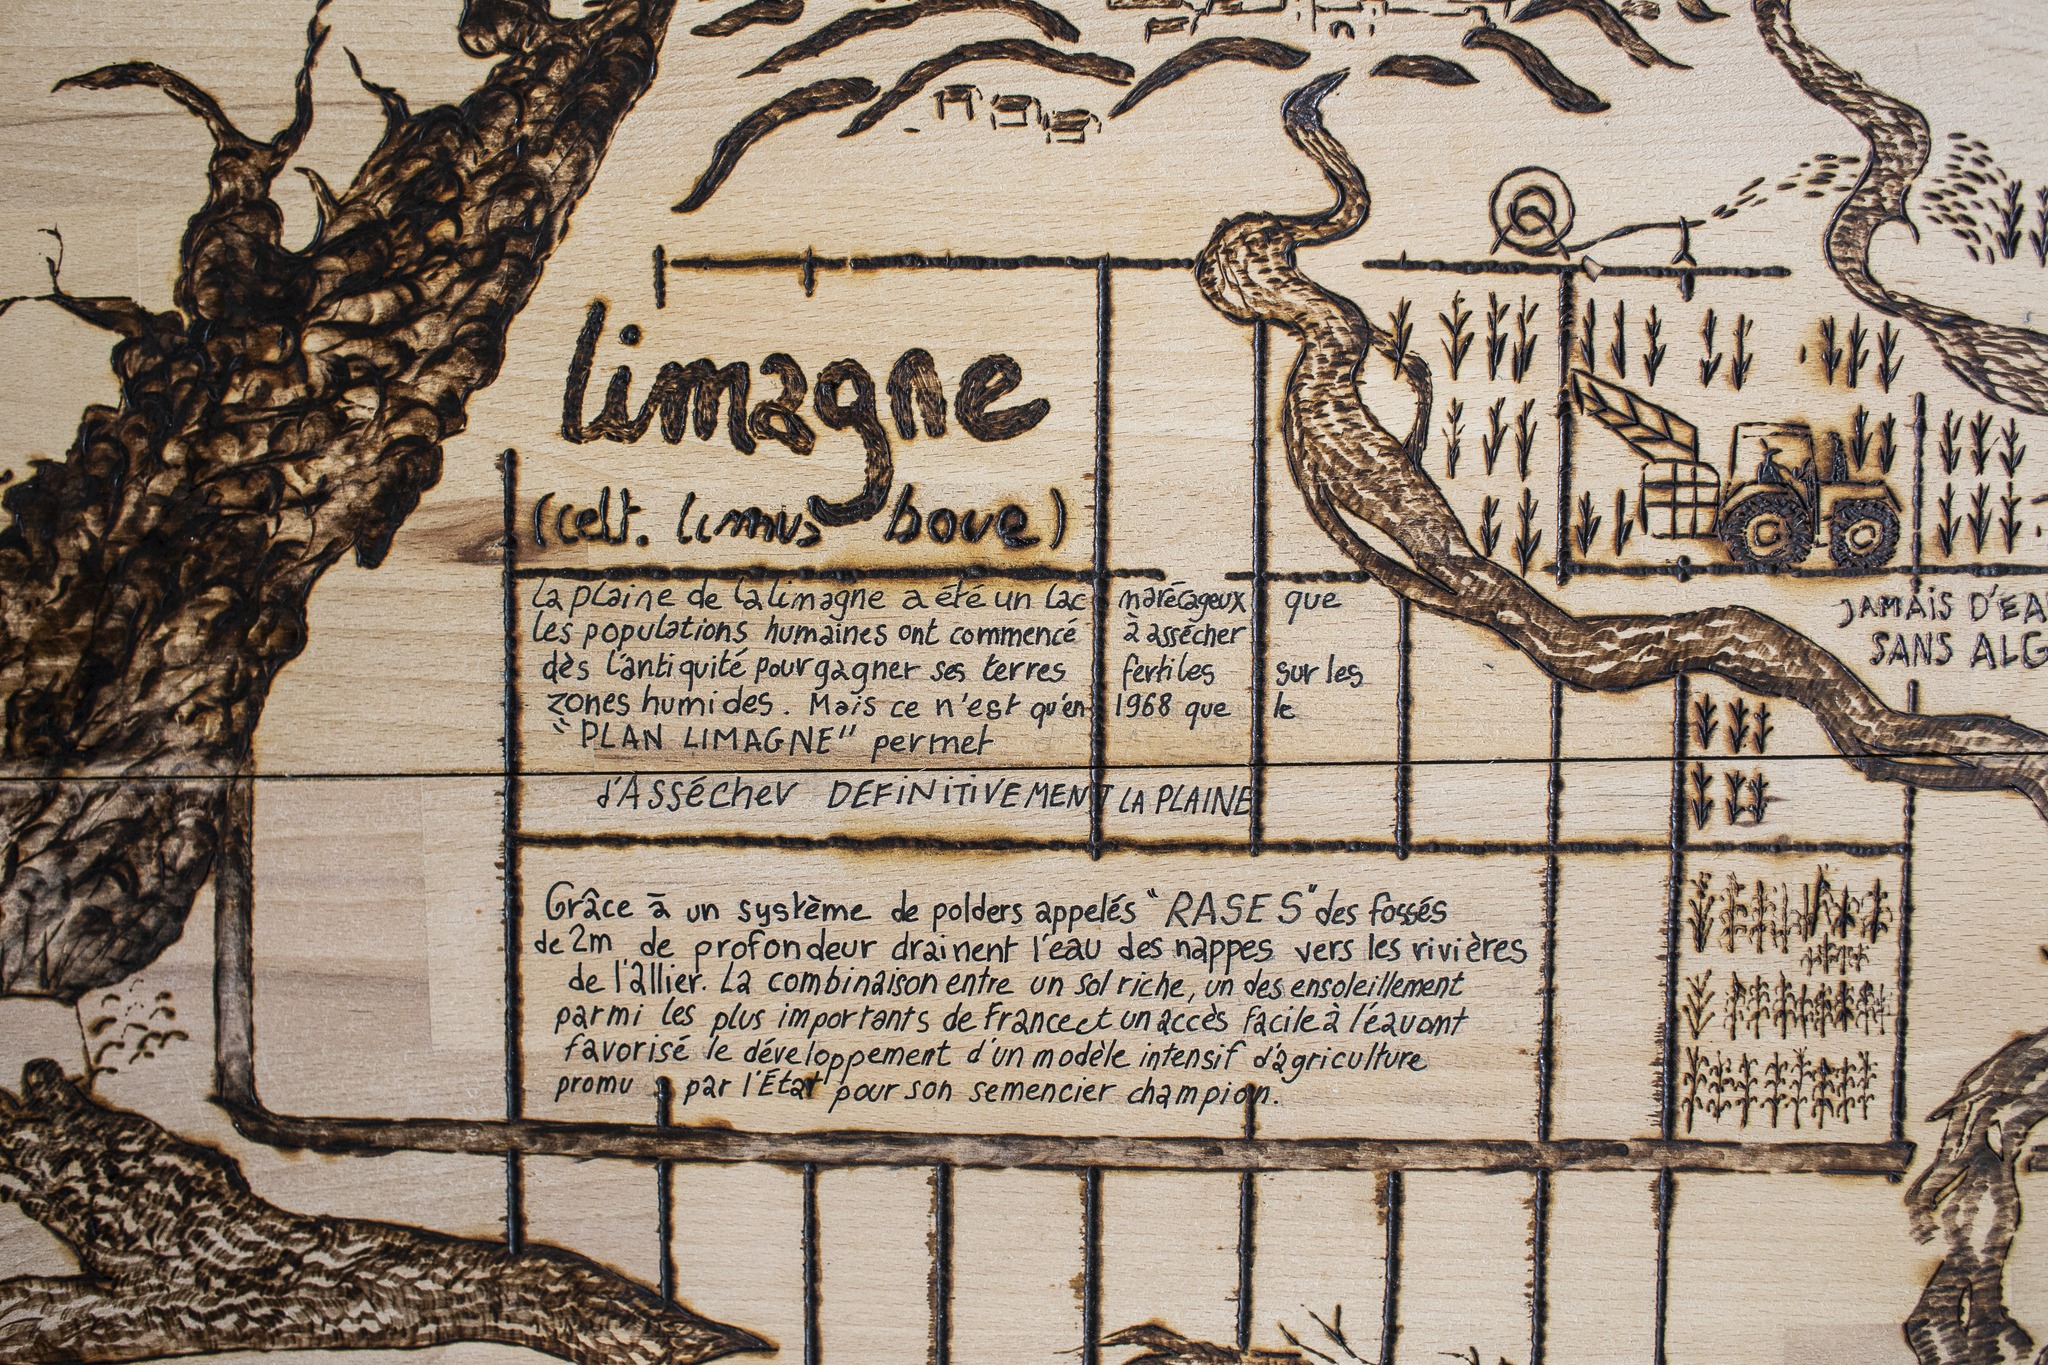 limagne
(celt. limus boue)
la plaine de la limagne a été un lac marécageux que
les populations humaines ont commencé à assécher
dès l'antiquité pour gagner ses terres fertiles sur les
zones humides. Mais ce n'est qu'en 1968 que le
"PLAN LIMAGNE" permet
d'Assécher DEFINITIVEMENT LA PLAINE
Grâce à un système de polders appelés "RASES" des fossés
de 2m de profondeur drainent l'eau des nappes vers les rivières
de l'allier. La combinaison entre un sol riche, un des ensoleillement
parmi les plus importants de France et un accès facile à l'eau ont
favorisé le développement d'un modèle intensif d'agriculture
promu par l'État pour son semencier champion.
JAMAIS D'EA
SANS ALG